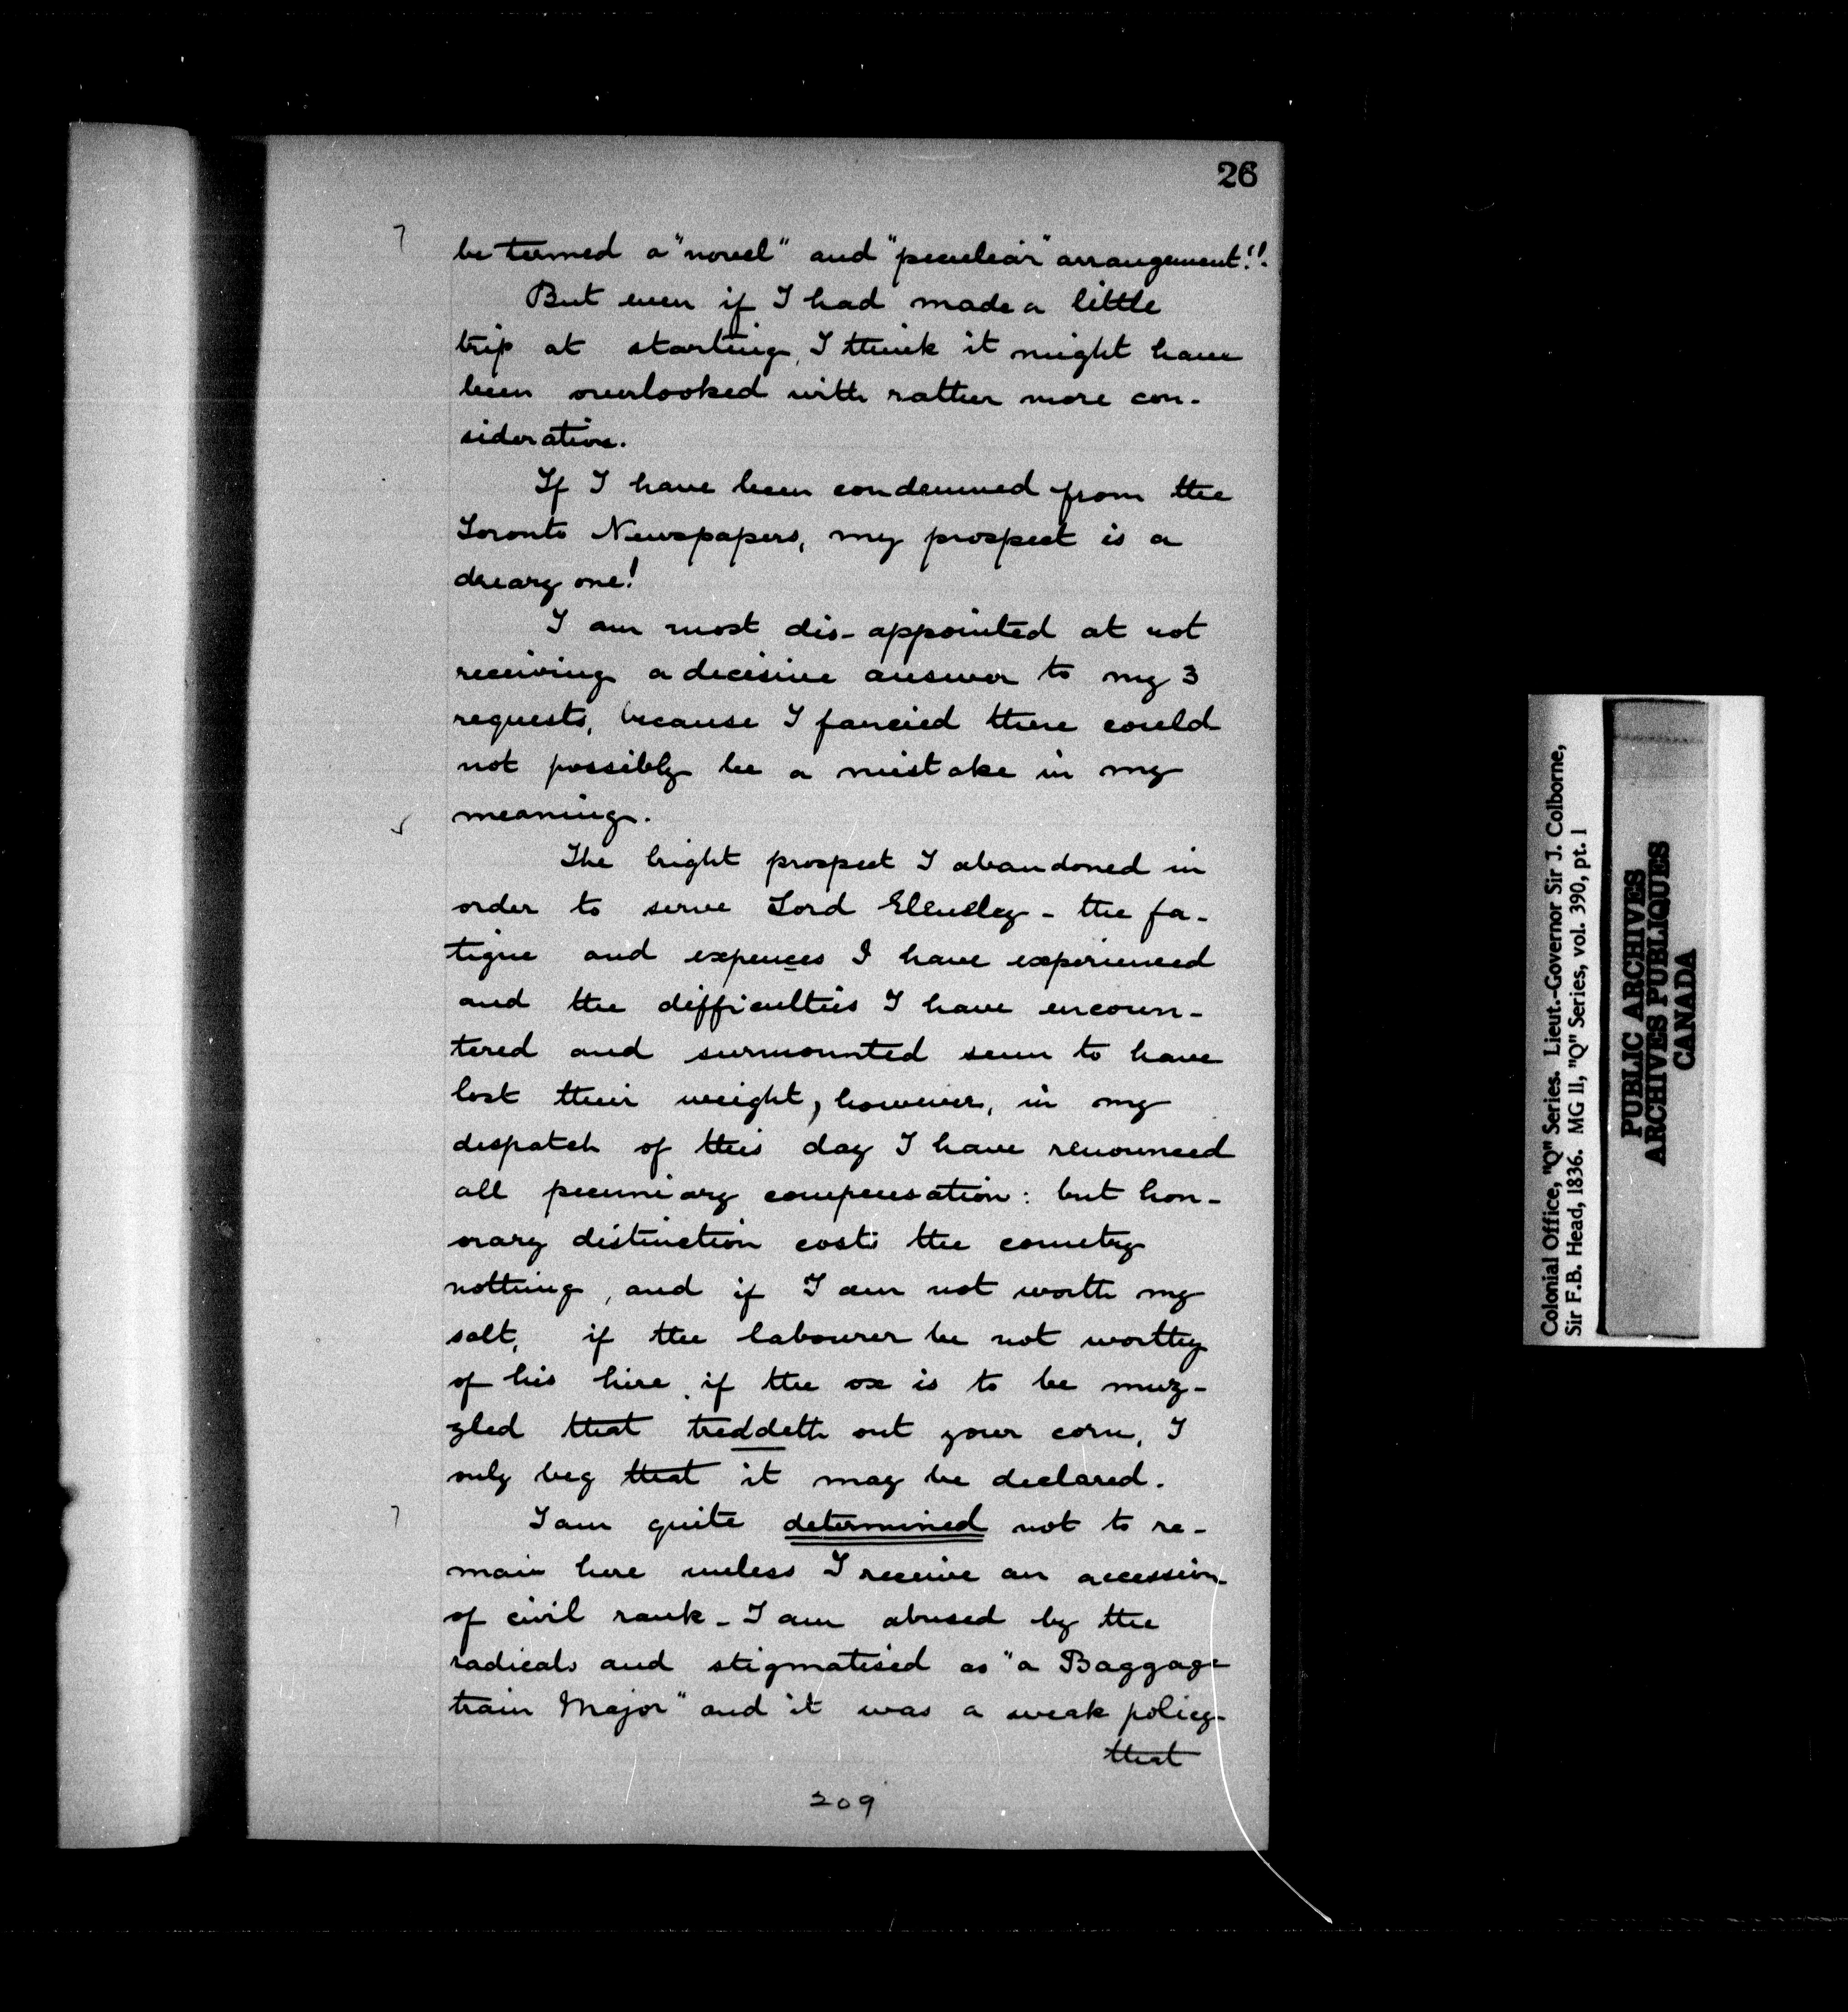 26
be termed a "novel" and "peculiar" arrangement!!.
But even if I had made a little
trip at starting, I think it might have
been overlooked with rather more con-
sideration.
If I have been condemned from the
Toronto Newspapers, my prospect is a
dreary one!
I am most dis-appointed at not
receiving a decisive answer to my 3
requests, because I fancied there could
not possibly be a mistake in my
meaning.
The bright prospect I abandoned in
order to serve Lord Glenelg - the fa-
tigue and expences I have experienced
and the difficulties I have encoun-
tered and surmounted seem to have
lost their weight, however, in my
despatch of this day I have renounced
all pecuniary compensation: but hon-
orary distinction costs the country
nothing, and if I am not worth my
salt, if the labourer be not worthy
of his hire, if the ox is to be muz-
zled that treddeth out your corn, I
only beg that it may be declared.
I am quite determined not to re-
main here unless I receive an accession
of civil rank - I am abused by the
radicals and stigmatised as "a Baggage
train Major" and it was a weak policy
that
209
Colonial Office, "Q" Series. Lieut.-Governor Sir J. Colborne,
Sir F.B. Head, 1836. MG 11, "Q" Series, vol. 390, pt. 1
PUBLIC ARCHIVES
ARCHIVES PUBLIQUES
CANADA